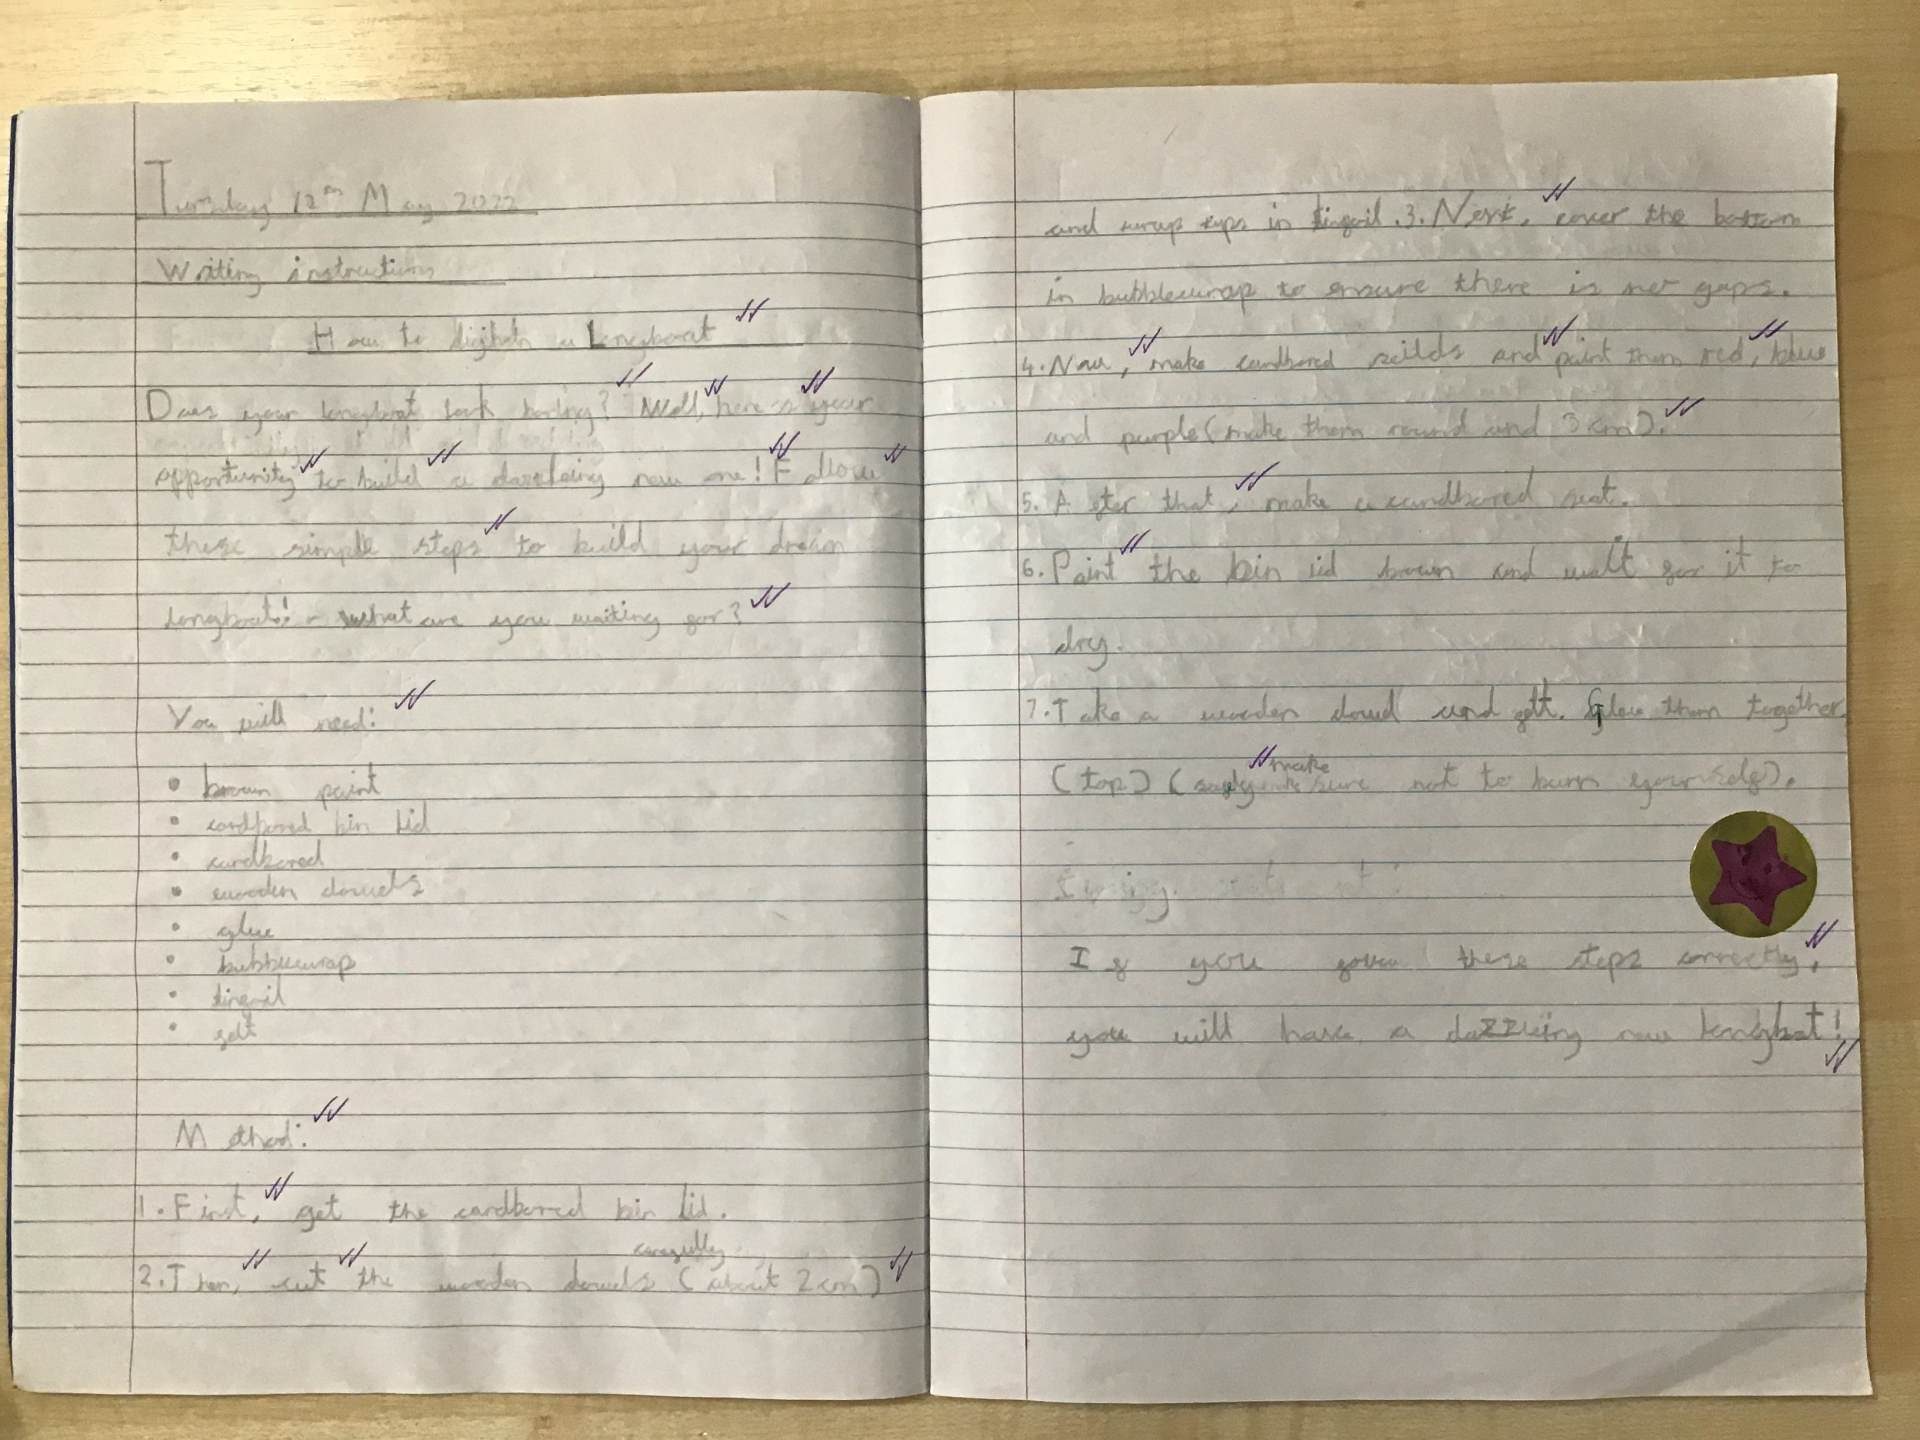 Tursday 12th May 2022
Writing instructions
How to a Longboat
Does your longboat look boring? Well, here is your
opportunity to build a dazzleing new one! Follow
these simple steps to build your dream
longboat! - What are you waiting for?
You will need:
• brown paint
• cardbored bin lid
• cardbored
• wooden dowels
• glue
• bubblewrap
• tingoil
• felt
Method:
1. First, get the cardbored bin lid.
carefully
2. Then, cut the wooden dowels (about 2cm)
and wrap in 3. Next, cover the bottom
in bubblewrap to ensure there is no gaps.
4. Now, make cardbored and paint them red, blue
and purple (make them round and 3cm).
5. After that, make a cardbored seat.
6. Paint the bin lid brown and wait for it to
dry.
7. Take a wooden dowel and felt. Glew them together
make
(top) ( sure not to burn yourself).
If you these steps correctly,
you will have a dazzleing new longboat!